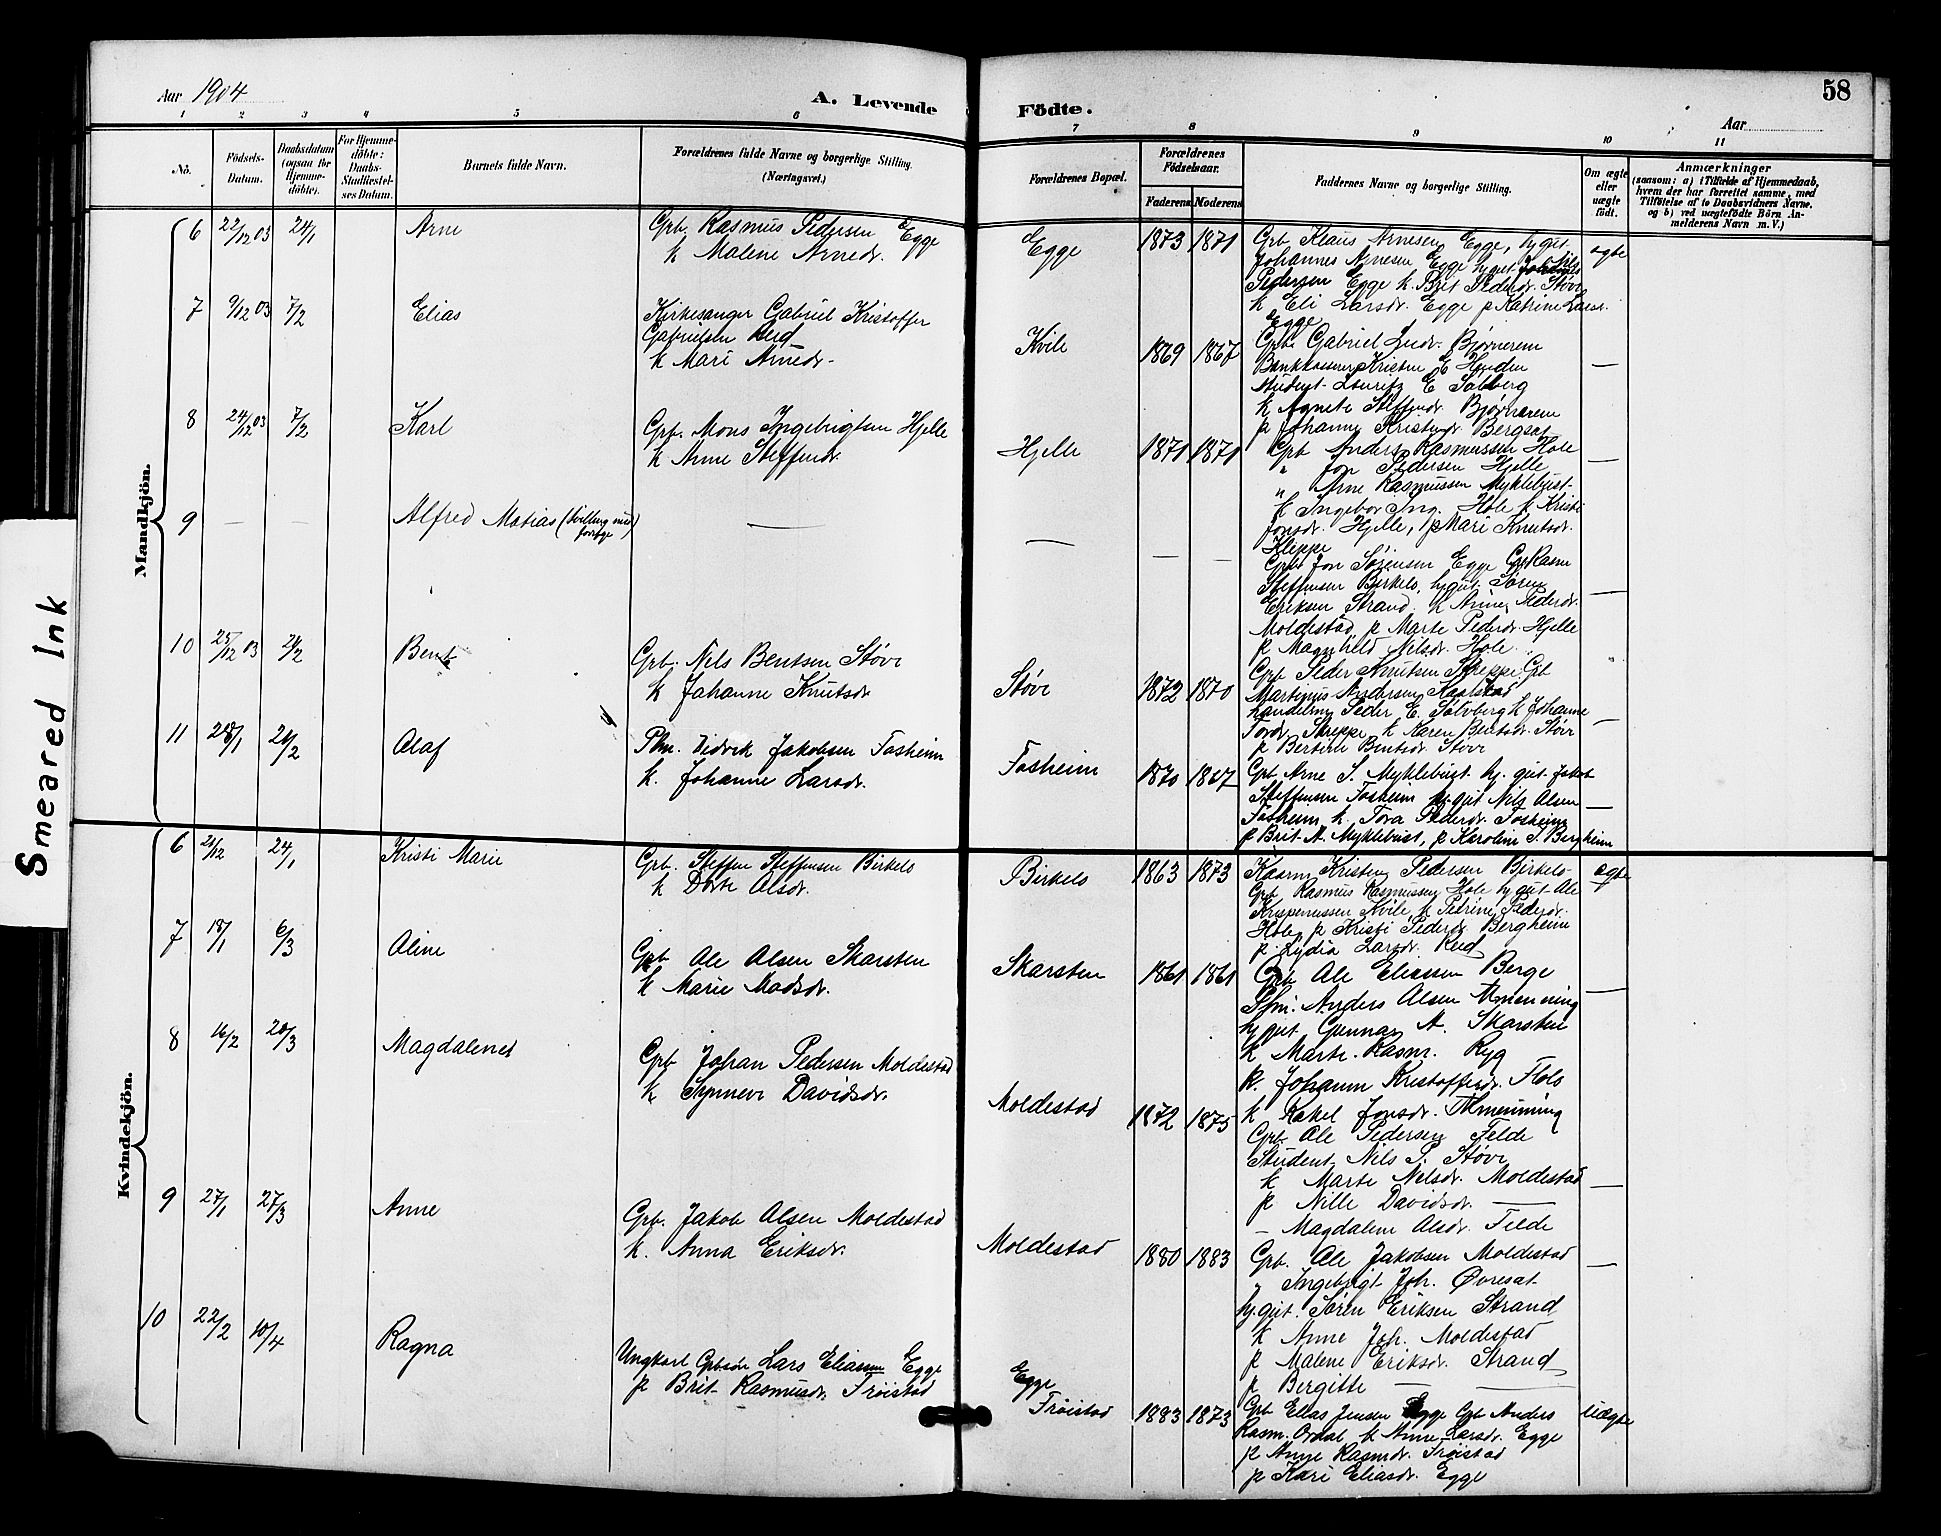 Aar 1904
A. Levende
Födte.
58
Aar
1 2 3 4 5 6 7 8 9 10 11
No.
Födsels-Datum.
Daabsdatum (ogsaa for Hjemme-döbte).
For Hjemme-döbte: Daabs-Stadfæstelses Datum.
Barnets fulde Navn.
Forældrenes fulde Navne og borgerlige Stilling. (Næringsvei.)
Forældrenes Bopæl.
Forældrenes Födselsaar.
Faderens Moderens
Faddernes Navne og borgerlige Stilling.
Om ægte eller uægte födt.
Anmærkninger
(saasom: a) i Tilfælde af Hjemmedaab, hvem der har forrettet samme, med Tilföielse af to Daabsvidners Navne. og b) ved uægtefödte Börn Anmelderens Navn m. V.)
Smeared Ink
Mandkjön.
6 22/12 03 24/1 Arne
Grb. Rasmus Pedersen Egge
k Malene Arnedr.
Egge 1873 1871
Grb. Klaus Arnesen Egge, hj.gut
Johannes Arnesen Egge hj.gut Nils
Pedersen Egge k. Brit Pedersdr. Støve
k Eli Larsdr. Egge p Katrine Larsdr.
Egge
ægte
7 9/12 03 7/2 Elias
Kirkesanger Gabriel Kristoffer
Gabrielsen Reed
k Mari Arnedr.
Kvile 1869 1867
Grb. Gabriel Ludv. Bjørnerem
Bankkasserer Kristen E Hjelden
Student Louritz E Solberg
k Agnete Steffensdr. Bjørnerem
p Johanne Kristensdr. Bergsat
—
8 24/12 03 7/2 Karl
Grb. Mons Ingebrigtsen Hjelle
k Anne Steffensdr.
Hjelle 1871 1871
Grb Anders Rasmussen Hole
" Jon Pedersen Hjelle
" Arne Rasmussen Myklebust
k Ingebor Ing. Hole k Kristi
Jonsdr. Hjelle, p Mari Knutsdr.
Kleppe
—
9 — — Alfred Matias (tvilling med forrige)
—
— — —
Grb Jon Sørensen Egge Grb Rasm
Steffensen Birkelo, hj.gut Søren
Eriksen Strand k Anne Pedersdr.
Moldestad p Marte Pedersdr. Hjelle
p Magnhild Nilsdr. Hole
—
10 25/12 03 21/2 Bent
Grb. Nils Bentsen Støve
k Johanne Knutsdr.
Støve 1872 1870
Grb Peder Knutsen Skreppe Grb
Martinus Andersen Kaalstad
handelsm Peder E. Solvberg k Johanne
Tordr. Skreppe k Karen Bentsdr. Støve
p Berthe Bentsdr. Støve
—
11 28/1 21/2 Olaf
Plm. Didrik Jakobsen Fosheim
k. Johanne Larsdr.
Fosheim 1870
Grb Arne S. Myklebust hj. gut Jakob
Steffensen Fosheim hj.gut Nils Olsen
Fosheim k. Tora Pedersdr. Fosheim
p Brit A. Myklebust, p Karoline S. Bergheim
—
Kvindekjön.
6 21/12 24/1 Kristi Marie
Grb. Steffen Steffensen Birkelo
k Dorte Olsdr.
Birkelo 1863 1873
Kaarm Kristen Pedersen Birkelo
Grb Rasmus Rasmussen Hole hj gut Ole
Kvile k Petrine Pedersdr.
Hole p Kristi Pedersdr. Bergheim
p Lydia Larsdr. Reed
ægte
7 18/1 6/3 Oline
Grb Ole Olsen Skarsten
k Marie Madsdr.
Skarsten 1861 1861
Grb Ole Eliassen Berge
Spm. Anders Olsen Almenning
hj gut Gunnar A. Skarsten
k Marte Rasm. Ryg
k. Johanne Kristoffersdr. Flolo
k Rakel Jonsdr. Almenning
—
8 16/2 20/3 Magdalene
Grb Johan Pedersen Moldestad
k Synneve Davidsdr.
Moldestad 1872 1875
Grb Ole Pedersen Felde
Student Nils P. Støve
k Marte Nilsdr. Moldestad
p Nille Davidsdr. —
— Magdalene Olsdr. Felde
—
9 27/1 27/3 Anne
Grb. Jakob Olsen Moldestad
k. Anna Eriksdr.
Moldestad 1880 1883
Grb. Ole Jakobsen Moldestad
" Ingebrigt Joh. Øvresat
hj.gut Søren Eriksen Strand
k Anne Joh. Moldestad
p Malene Eriksdr. Strand
p Bergitte — —
—
10 22/2 10/4 Ragna
Ungkarl Grbsøn Lars Eliassen Egge
p Brit Rasmusdr. Trøistad
Egge
Trøistad 1883 1873
Grb Elias Jensen Egge Grb Anders
Rasm. Ordal k Anne Larsdr. Egge
p Anne Rasmdr. Trøistad
p Kari Eliasdr. Egge
Uægte